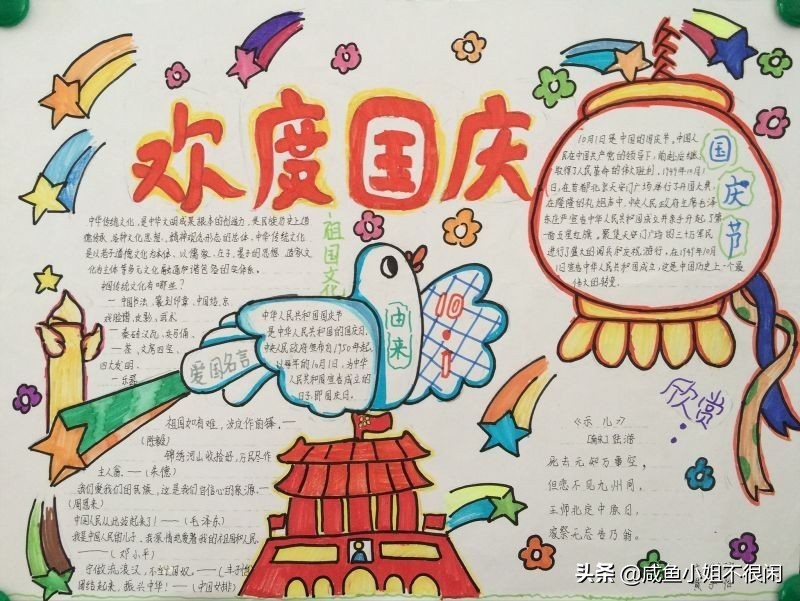 欢度国庆
中华传统文化,是中华文明成果根本的创造力,是民族历史上道
德传承、各种文化思想、精神观念形态的总体。中华传统文化
是以老子道德文化为本体、以儒家、庄子、墨子的思想、道家文
化为主体等多元文化融通和谐包容的实体系。
中国传统文化有哪些?
一 中国书法、篆刻印章、中国结、京
戏脸谱、皮影、武术
一秦砖汉瓦、兵马俑、
一茶、文房四宝、
四大发明、
祖国文化
中华人民共和国国庆节
是中华人民共和国的国庆日,
中央人民政府宣布自1950年起,
以每年的10月1日,为中华
人民共和国宣告成立的
日子,即国庆日。
由来
10·1
爱国名言
祖国如有难,汝应作前锋。——
(陈毅)
锦绣河山收拾好,万民尽作
主人翁。——(朱德)
我们爱我们的民族,这是我们自信心的泉源。—
(周恩来)
中国人民从此站起来了!——(毛泽东)
我是中国人民的儿子,我深情地爱着我的祖国和人民。
——(邓小平)
宁做流浪汉,不当亡国奴。——(丰子恺)
团结起来,振兴中华!——(中国女排)
10月1日是中国的国庆节。中国人
民在中国共产党的领导下,前赴后继,
取得了人民革命的伟大胜利。1949年10月1
日,在首都北京天安门广场举行了开国大典,
在隆隆的礼炮声中,中央人民政府主席毛泽
东庄严宣告中华人民共和国成立并亲手升起了第
一面五星红旗。聚集天安门广场的三十万军民
进行了盛大的阅兵和庆祝游行。在1949年10月
1日宣告中华人民共和国成立,这是中国历史上一个最
伟大的转变。
国庆节
欣赏
《示儿》
[南宋]陆游
死去元知万事空,
但悲不见九州同。
王师北定中原日,
家祭无忘告乃翁。
头条 @咸鱼小姐不很闲